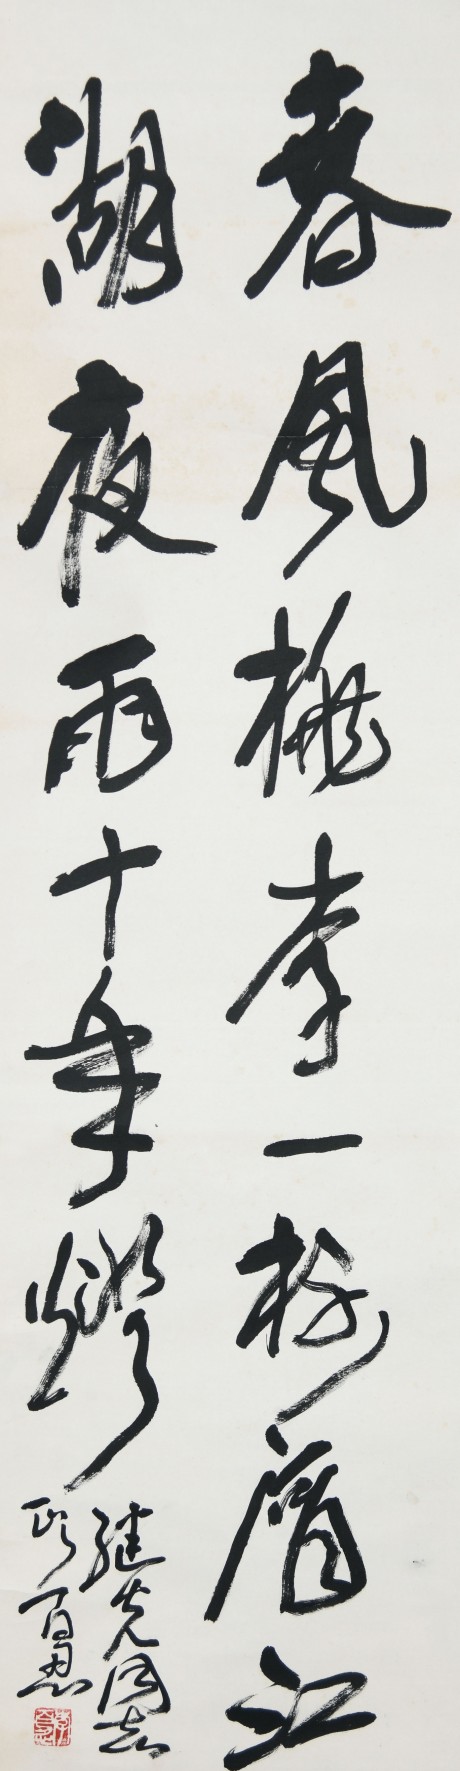 春風桃李一杯酒江
湖夜雨十年燈
继先同志
正 百忍